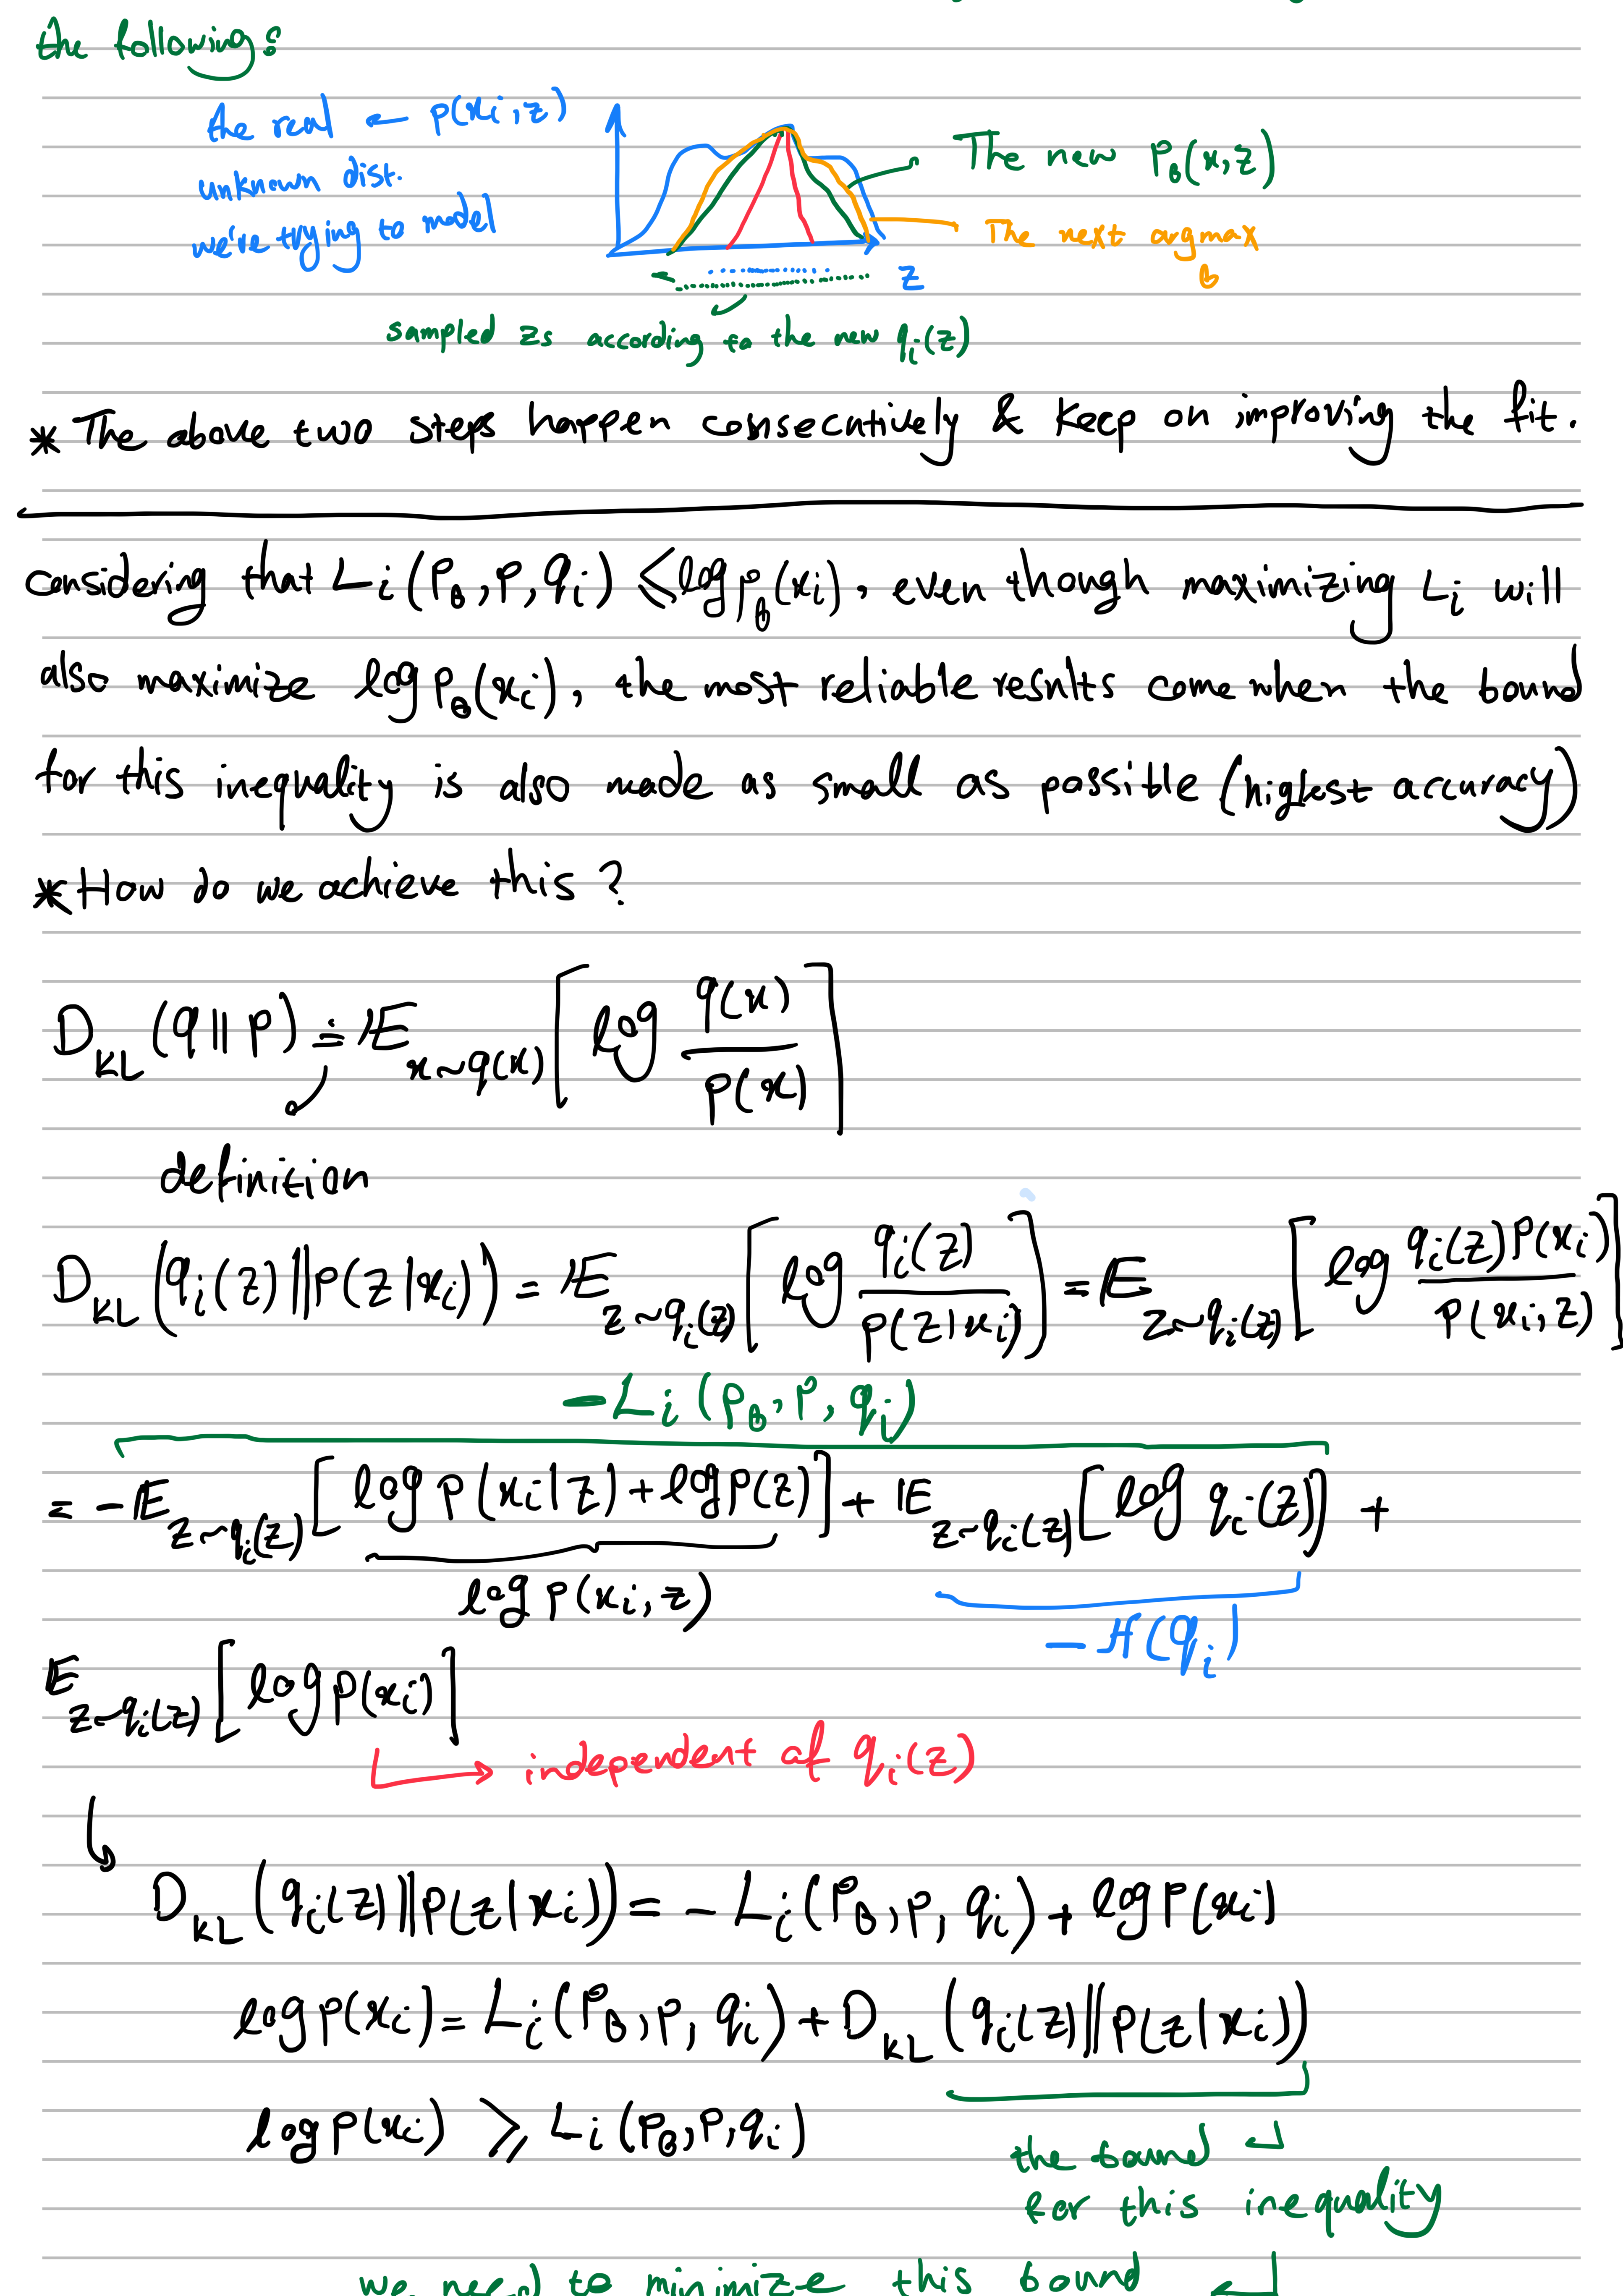 the following:
the real ← p(xᵢ, z)
unknown dist.
we're trying to model
The new p_θ(x, z)
The next argmax
θ
z
sampled zs according to the new qᵢ(z)
* The above two steps happen consecutively & keep on improving the fit.
considering that Lᵢ(p_θ, p, qᵢ) ⩽ log p_θ(xᵢ), even though maximizing Lᵢ will
also maximize log p_θ(xᵢ), the most reliable results come when the bound
for this inequality is also made as small as possible (highest accuracy)
* How do we achieve this?
D_KL(q || p) ≐ E_{x~q(x)} [ log q(x) / p(x) ]
definition
D_KL(qᵢ(z) || p(z|xᵢ)) = E_{z~qᵢ(z)} [ log qᵢ(z) / p(z|xᵢ) ] = E_{z~qᵢ(z)} [ log qᵢ(z)p(xᵢ) / p(xᵢ, z) ]
-Lᵢ(p_θ, p, qᵢ)
= -E_{z~qᵢ(z)} [ log p(xᵢ|z) + log p(z) ] + E_{z~qᵢ(z)} [ log qᵢ(z) ] +
log p(xᵢ, z)
-H(qᵢ)
E_{z~qᵢ(z)} [ log p(xᵢ) ]
→ independent of qᵢ(z)
D_KL(qᵢ(z) || p(z|xᵢ)) = - Lᵢ(p_θ, p, qᵢ) + log p(xᵢ)
log p(xᵢ) = Lᵢ(p_θ, p, qᵢ) + D_KL(qᵢ(z) || p(z|xᵢ))
log p(xᵢ) ⩾ Lᵢ(p_θ, p, qᵢ)
the bound
for this inequality
we need to minimize this bound